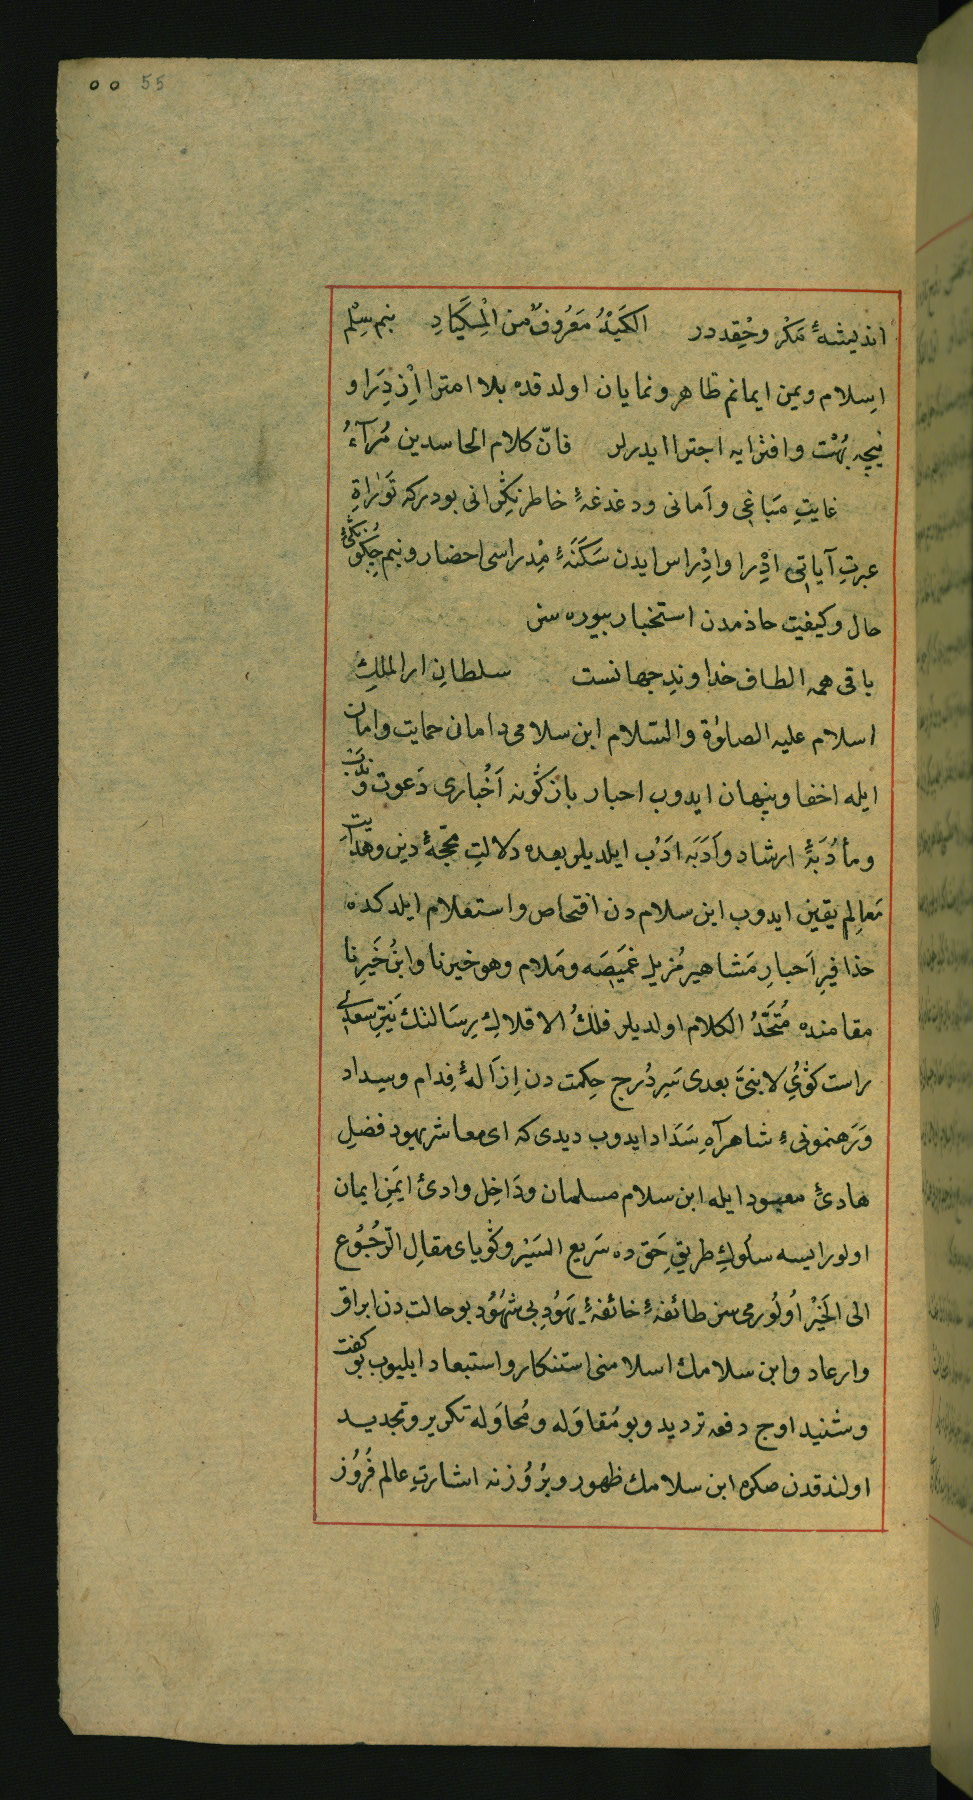 ٥٥ 55
اندیشهٔ مَكْر وحِقددر الكَیْدُ مَعْرُوفٌ من الْمِكْیَادِ بنم سِلْم
اسِلام ویمن ایمانم ظاهر ونمایان اولدقده بلا امترا
نیچه بُهْت وافترایه اجترا ایدرلر فانّ كلام الحاسدین مُرآءُ
غایتِ مَباغی واَمانی ودغدغهٔ خاطر نِكِرانی بودركه تَوْرٰاةِ
عبرتِ آیاتی اذْرا وادْراس ایدن سَكَنَهٔ مِدراسی احضار وبنم چِگُونگئِ
حال وكیفیت حاذمدن استخبار بیوره سز
باقی همه الطاف خداوندِ جهانست سلطانِ ارالملكِ
اسلام علیه الصلوٰة والسّلام ابن سلامی دامان حمایت وامان
ایله اخفا وپنهان ایدوب احبار باژگونه اَخْباری دَعوت
ومأدُبَهٔ ارشاد واَدَبَه ادَب ایلدیلر بعده دلالتِ محجّهٔ دین وهدایت
مَعالِم یقین ایدوب ابن سلام دن افتحاص واستعلام ایلدكده
حذافیرِ اَحبارِ مَشاهیر مُزیلِ غمَیصَه ومَلام وهو خیرنا وابنُ خَیرِنا
مقامنده مُتَّحَدُ الكلام اولدیلر فلكُ الافلاكِ رِسَالتك نَیّرِ سعدی
راست گوُیِ لا نبیَّ بعدی سَرِ دُرج حِكمت دن اِزالَهٔ فِدام وسِداد
وَرَهنمونیٔ شاهراهِ سَدَاد ایدوب دیدی كه ای معاشر یهود فضلِ
هادئ معبود ایله ابن سلام مسلمان ودَاخِل وادئ ایمَنِ ایمان
اولور ایسه سلوكِ طریقِ حَق ده سَریع السَیْر وگویای مقالِ الرُّجُوع
الی الخَیْر اُولُورمی سز طائفهٔ خائفهٔ یَهُودِ بی شُهُود بو حالت دن ابراق
وارعاد وابن سلامك اسلامنی استنكار واستبعاد ایلیوب بو گفت
وشنید اوچ دفعه تردید وبو مُقاوَله ومُحاوَله تكریر وتجدید
اولندقدن صكره ابن سلامك ظهور وبرُوُزنه اشارتِ عالم فُرُوز